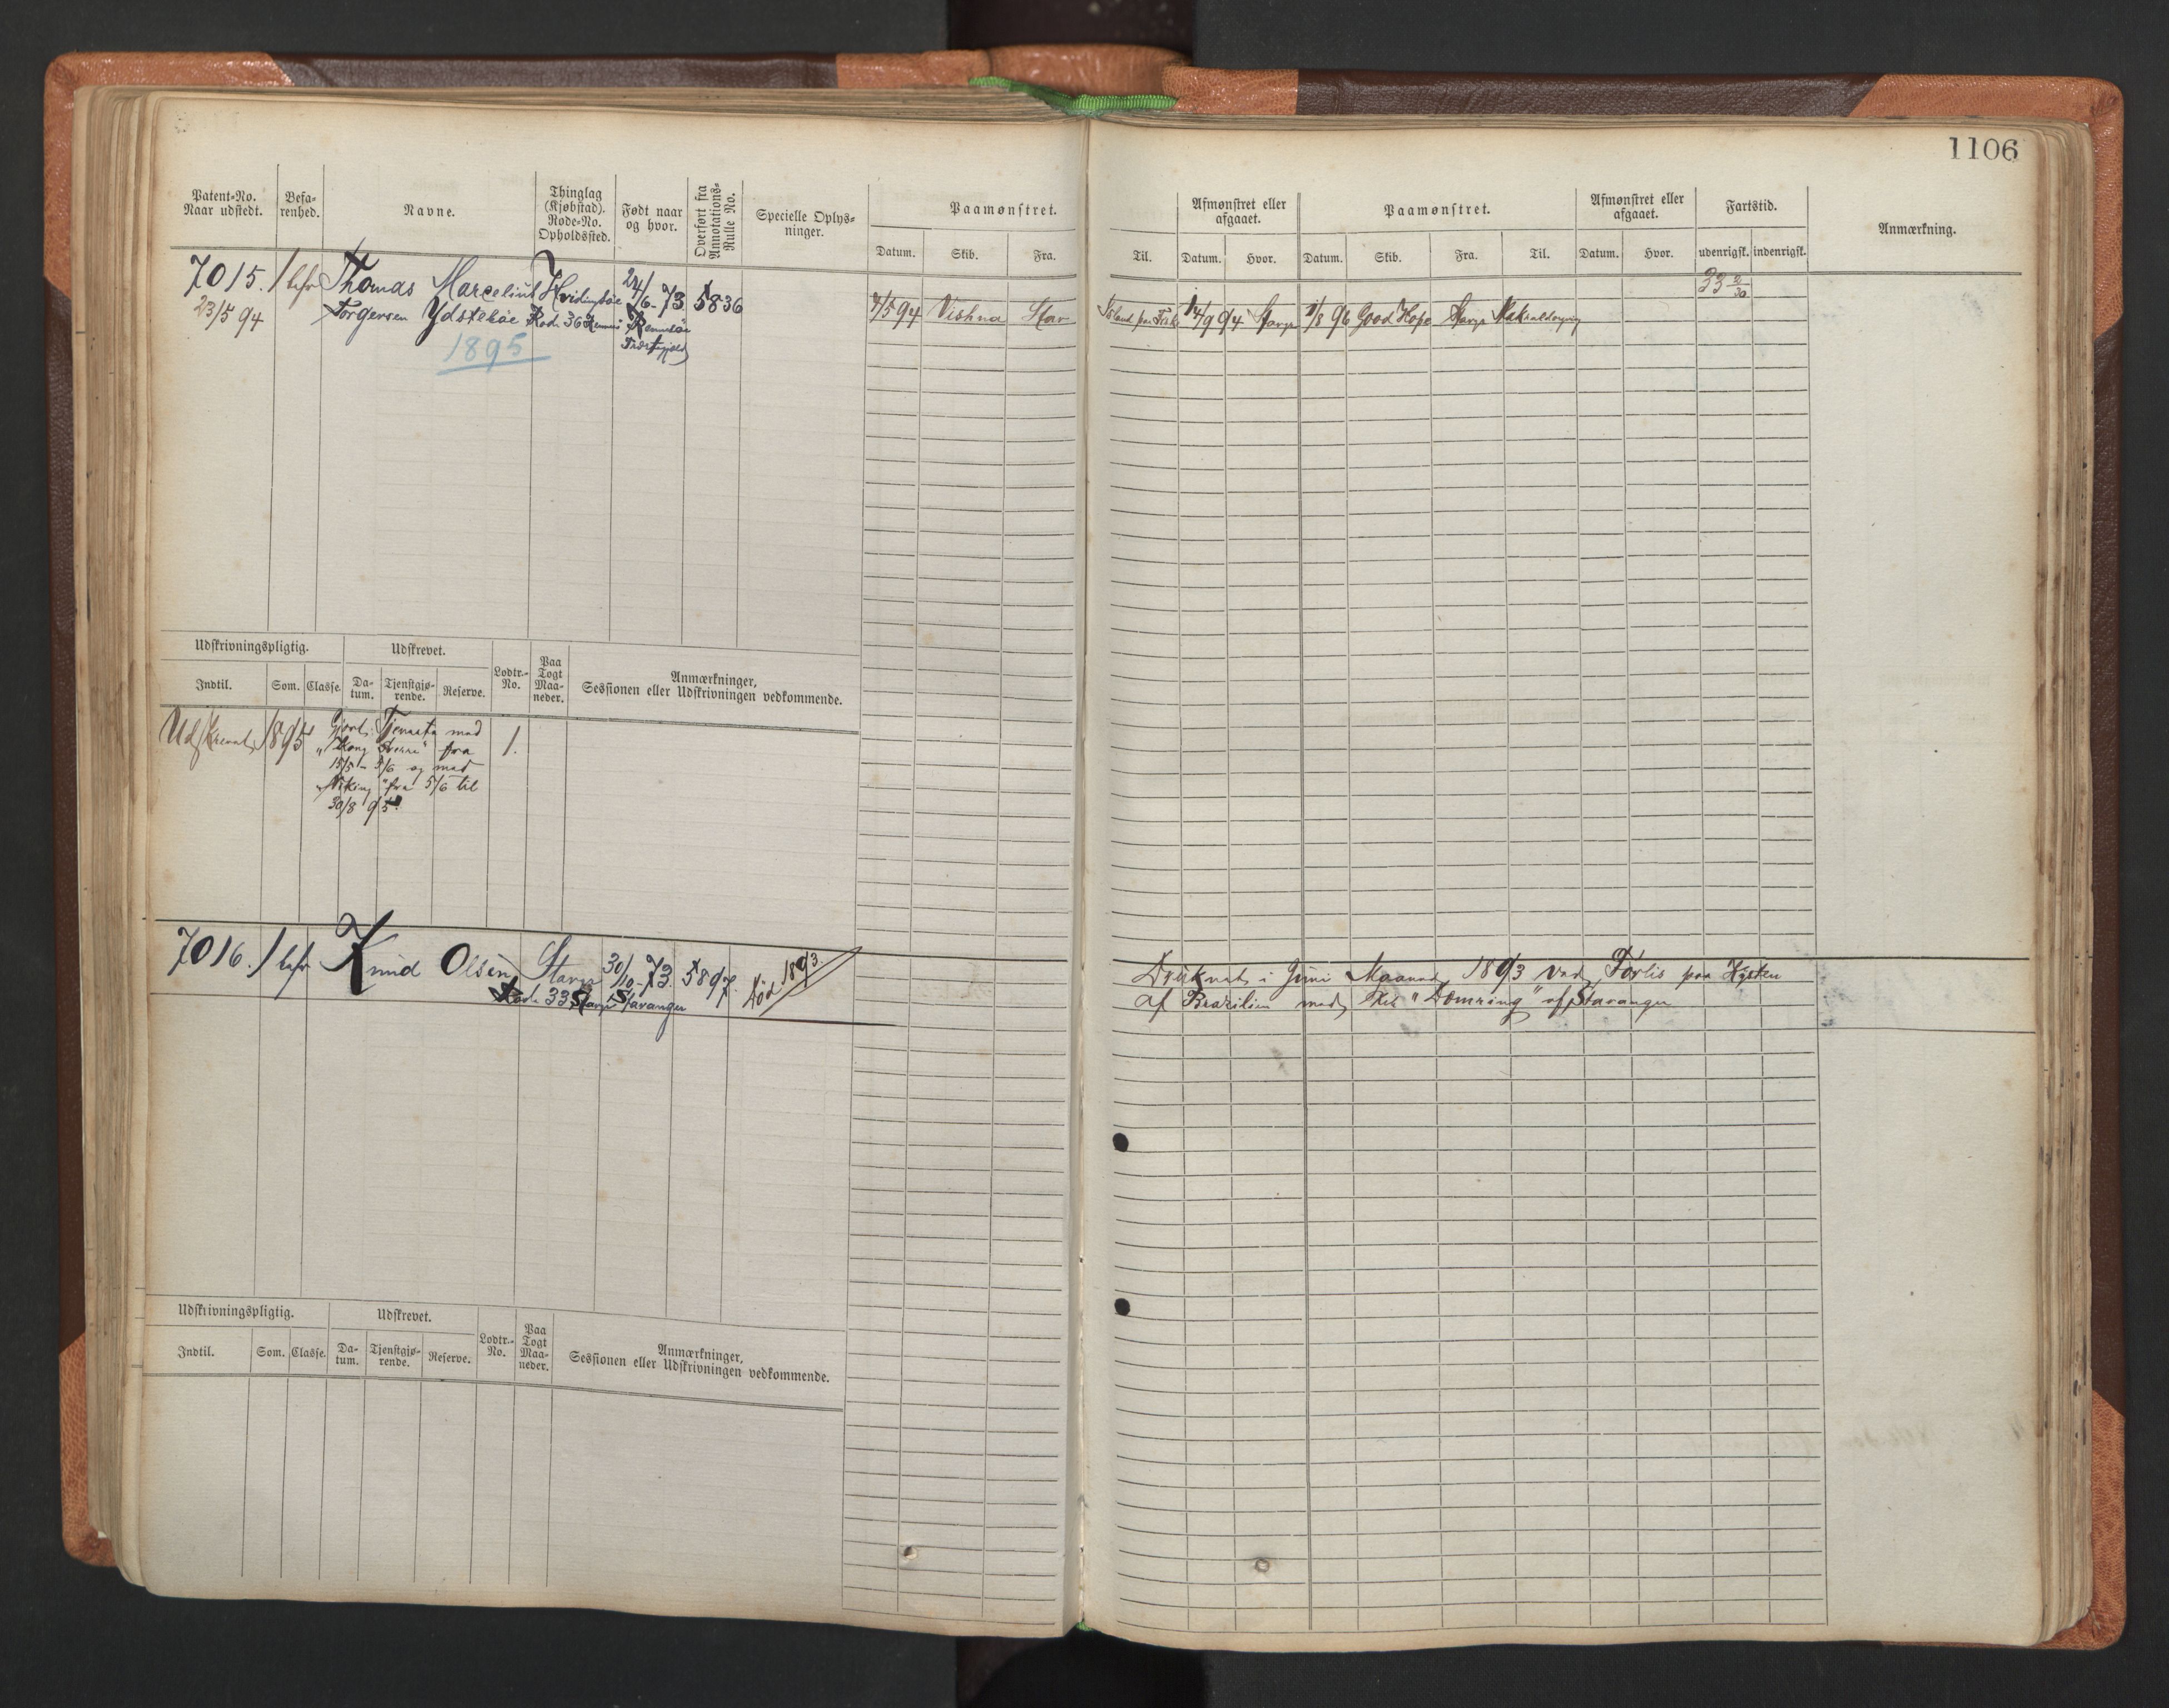 1106
Patent-No. Naar udstedt.
Befa-renhed.
Navne.
Thinglag (Kjøbstad). Rode-No. Opholdssted.
Født naar og hvor.
Overført fra Annotations-Rulle No.
Specielle Oplys-ninger.
Paamønstret.
Datum. Skib. Fra.
Til.
Afmønstret eller afgaaet.
Datum. Hvor.
Paamønstret.
Datum. Skib. Fra. Til.
Afmønstret eller afgaaet.
Datum. Hvor.
Fartstid.
udenrigsk. indenrigsk.
Anmærkning.
7015. Thomas Marcelius Hvidingsøe 24/6-73 5836
23/5 94 Torgersen Ydstebøe Rode 36 Rennesøe
1895
4/5 94 Vishna Stav
Island paa Fiske 14/9 94 Stavgr 1/8 96 Good Hope Stavgr Makreldorging
33 2/30
Udskrivningspligtig. Udskrevet. Lodtr.-No. Paa Togt Maa-neder. Anmærkninger, Sessionen eller Udskrivningen vedkommende.
Indtil. Som. Classe. Da-tum. Tjenstgjø-rende. Reserve.
Udskrevet 1895 Gjort Tjeneste med 1.
"Kong Sverre" fra
15/5 - 5/6 og med
"Viking" fra 5/6 til
30/8 95.
7016. Knud Olsen Stavgr 30/10-73. 5897. Død 1893.
Rode 33 Stavgr Stavanger
Druknet i Juni Maaned 1893 ved Forlis paa Kysten
af Brazilien med Sk. "Dømring" af Stavanger
Udskrivningspligtig. Udskrevet. Lodtr.-No. Paa Togt Maa-neder. Anmærkninger, Sessionen eller Udskrivningen vedkommende.
Indtil. Som. Classe. Da-tum. Tjenstgjø-rende. Reserve.